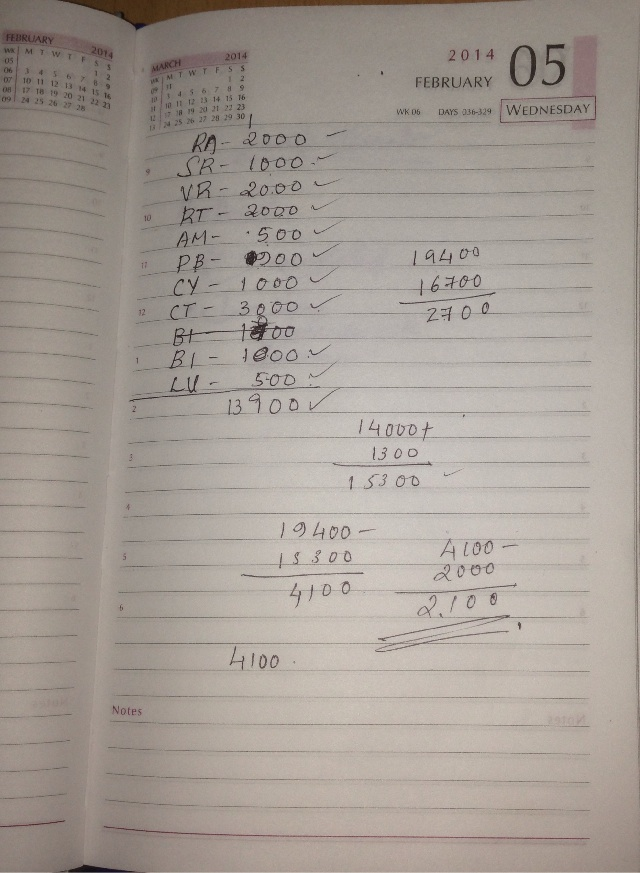 FEBRUARY 2014
WK M T W T F S S
05 1 2
06 3 4 5 6 7 8 9
07 10 11 12 13 14 15 16
08 17 18 19 20 21 22 23
09 24 25 26 27 28
MARCH 2014
WK M T W T F S S
09 1 2
10 3 4 5 6 7 8 9
11 10 11 12 13 14 15 16
12 17 18 19 20 21 22 23
13 24 25 26 27 28 29 30
2014
FEBRUARY 05
WK 06 DAYS 036-329 WEDNESDAY
RA - 2000 -
9 SR - 1000 - ✓
VR - 2000 ✓
10 RT - 2000 ✓
AM - 500 ✓
11 PB - 900 ✓
CY - 1000 ✓
12 CT - 3000 ✓
BI - 00
1 BI - 1000 ✓
LU - 500 ✓
2 13900 ✓
19400
16700
2700
14000+
3 1300
15300 ✓
4
19400 -
5 15300
4100
4100 -
2000
2,100
6
4100 .
Notes